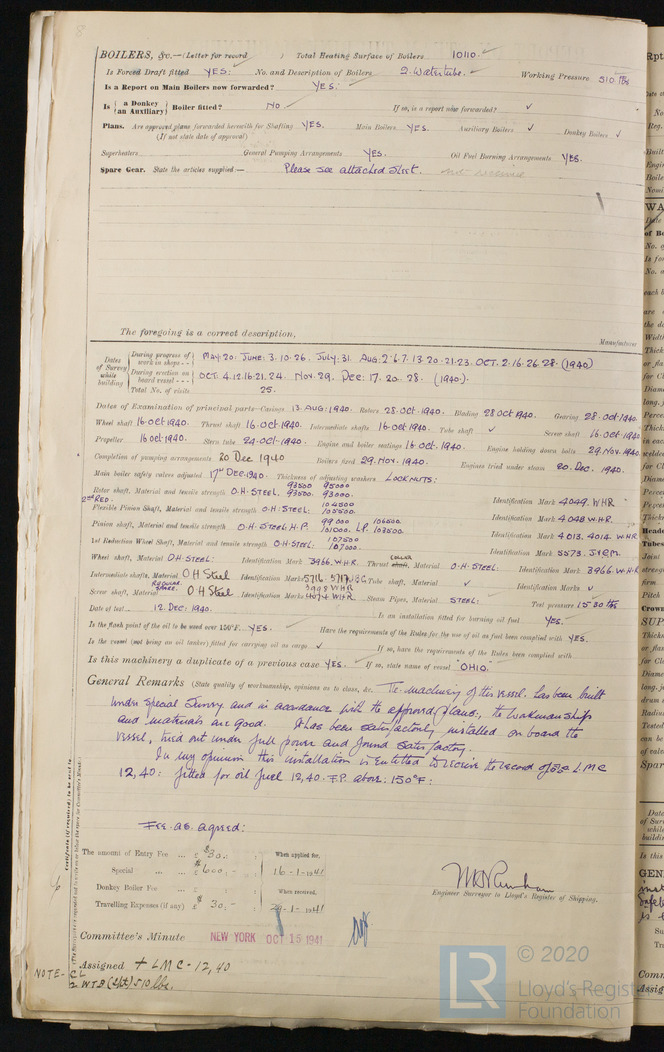 BOILERS, &c.—(Letter for record ) Total Heating Surface of Boilers 10110
Is Forced Draft fitted YES: No. and Description of Boilers 2. Watertube. Working Pressure 510 lbs
Is a Report on Main Boilers now forwarded? YES.
Is { a Donkey / an Auxiliary } Boiler fitted? No. If so, is a report now forwarded? ✓
Plans. Are approved plans forwarded herewith for Shafting YES. Main Boilers YES. Auxiliary Boilers ✓ Donkey Boilers ✓
(If not state date of approval)
Superheaters General Pumping Arrangements YES. Oil Fuel Burning Arrangements YES.
Spare Gear. State the articles supplied:— Please see attached sheet. not received
The foregoing is a correct description,
Manufacturer
Dates of Survey while building
During progress of work in shops - - MAY. 20. JUNE: 3.10.26. JULY: 31. AUG: 2.6.7.13.20.21.23. OCT. 2.16.26.28. (1940)
During erection on board vessel - - - OCT. 4.12.16.21.24. Nov. 29. Dec: 17. 20. 28. (1940.)
Total No. of visits 25.
Dates of Examination of principal parts—Casings 13. AUG: 1940. Rotors 28. Oct. 1940. Blading 28 Oct 1940. Gearing 28. Oct. 1940.
Wheel shaft 16 Oct 1940. Thrust shaft 16 Oct. 1940. Intermediate shafts 16 Oct. 1940. Tube shaft ✓ Screw shaft 16 Oct. 1940
Propeller 16 Oct. 1940. Stern tube 24. Oct. 1940. Engine and boiler seatings 16 Oct. 1940. Engine holding down bolts 29. Nov. 1940
Completion of pumping arrangements 20 Dec 1940 Boilers fixed 29. Nov. 1940. Engines tried under steam 20. Dec. 1940.
Main boiler safety valves adjusted 17th Dec. 1940. Thickness of adjusting washers LOCKNUTS:
93500 95000
Rotor shaft, Material and tensile strength O.H. STEEL. 93500. 93000. Identification Mark 4049. WHR
2nd RED. 104500
Flexible Pinion Shaft, Material and tensile strength O.H. STEEL: 100500. Identification Mark 4048 W.H.R.
Pinion shaft, Material and tensile strength O.H. STEEL H.P. 99000 101000. L.P. 106500. 103500. Identification Mark 4013. 4014. W.H.R
1st Reduction Wheel Shaft, Material and tensile strength O.H. STEEL: 107500 107000. Identification Mark 5573.
Wheel shaft, Material O.H. STEEL: Identification Mark 3966. W.H.R. Thrust shaft, COLLAR Material O.H. STEEL: Identification Mark 3966. W.H.R
Intermediate shafts, Material O H Steel Identification Marks Tube shaft, Material ✓ Identification Marks ✓
Screw shaft, Material O H Steel Identification Marks 4074 WHR. Steam Pipes, Material STEEL: Test pressure 1530 lbs
Date of test 12. Dec. 1940. Is an installation fitted for burning oil fuel YES.
Is the flash point of the oil to be used over 150°F. YES. Have the requirements of the Rules for the use of oil as fuel been complied with YES.
Is the vessel (not being an oil tanker) fitted for carrying oil as cargo ✓ If so, have the requirements of the Rules been complied with
Is this machinery a duplicate of a previous case YES. If so, state name of vessel "OHIO."
General Remarks (State quality of workmanship, opinions as to class, &c. The machinery of this vessel has been built
under Special Survey and in accordance with the approved plans, the workmanship
and materials are good. It has been satisfactorily installed on board the
vessel, tried out under full power and found satisfactory.
In my opinion this installation is entitled to receive the record of L.M.C
12,40: fitted for oil fuel 12,40. F.P. above: 150°F:
Fee as agreed:
The amount of Entry Fee ... £ $30.- : When applied for,
Special ... ... £ $600.- : 16-1-1941
Donkey Boiler Fee ... £ : : When received,
Travelling Expenses (if any) £ $30.- : 29-1-1941
Engineer Surveyor to Lloyd's Register of Shipping.
Committee's Minute NEW YORK OCT 15 1941
Assigned + LMC - 12,40
NOTE- CL
2 W.T.B (Spt) 510 lbs.
© 2020
LR Lloyd's Register
Foundation